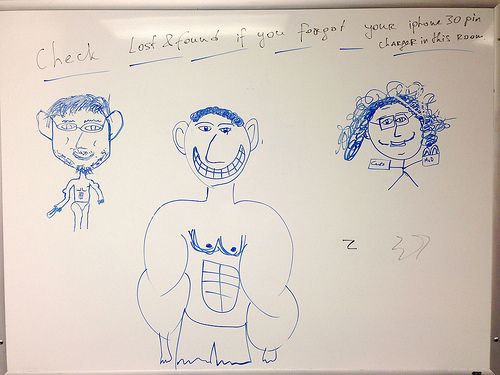 Check Lost & found if you forgot your iphone 30 pin
charger in this room